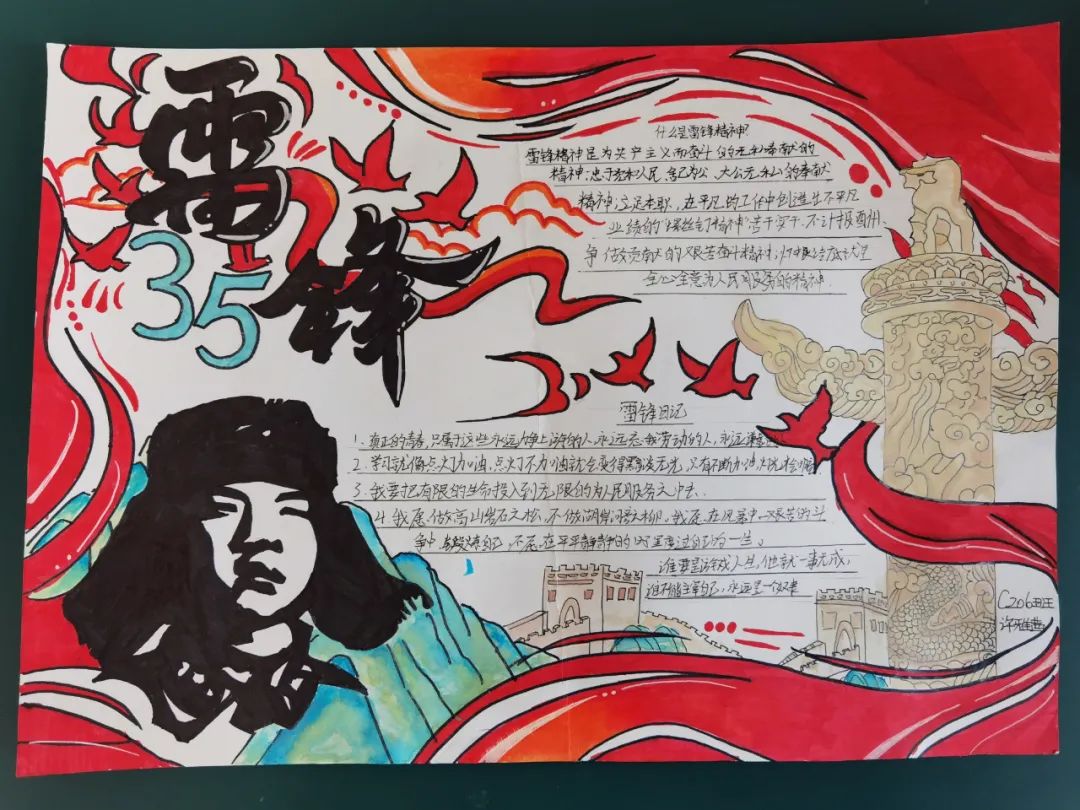 雷锋
35
什么是雷锋精神?
雷锋精神是为共产主义而奋斗的无私奉献的
精神;忠于党和人民、舍己为公、大公无私的奉献
精神;立足本职、在平凡的工作中创造出不平凡
业绩的"螺丝钉精神";苦干实干、不计报酬、
争做贡献的艰苦奋斗精神;归根结底就是
全心全意为人民服务的精神.
雷锋日记
1. 真正的青春,只属于这些永远力争上游的人,永远忘我劳动的人,永远谦虚
2. 学习就像点灯加油,点灯不加油就会变得黑淡无光,只有不断加油,灯光
3. 我要把有限的生命投入到无限的为人民服务之中去.
4. 我愿做高山岩石之松,不做湖岸之柳,我愿在风暴中艰苦的斗
争中锻炼自己,不愿在平平静静的日子里度过自己的一生。
谁要是游戏人生,他就一事无成,
谁不能主宰自己,永远是一个奴隶
C206班